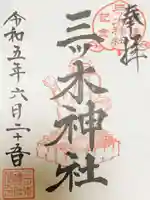 奉拝
三ッ木神社
令和五年六月二十五日